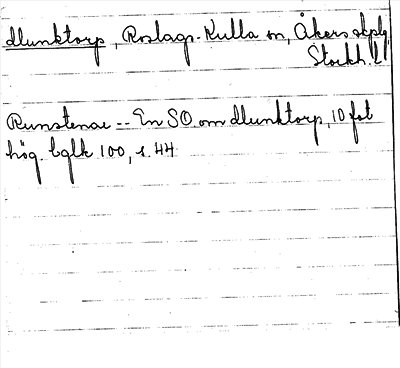 Slunktorp, Roslags-Kulla sn, Åkers skplg,
Stockh. l.
Runstenar -- En SO. om Slunktorp, 10 fot
hög. Lglk 100, s. 44